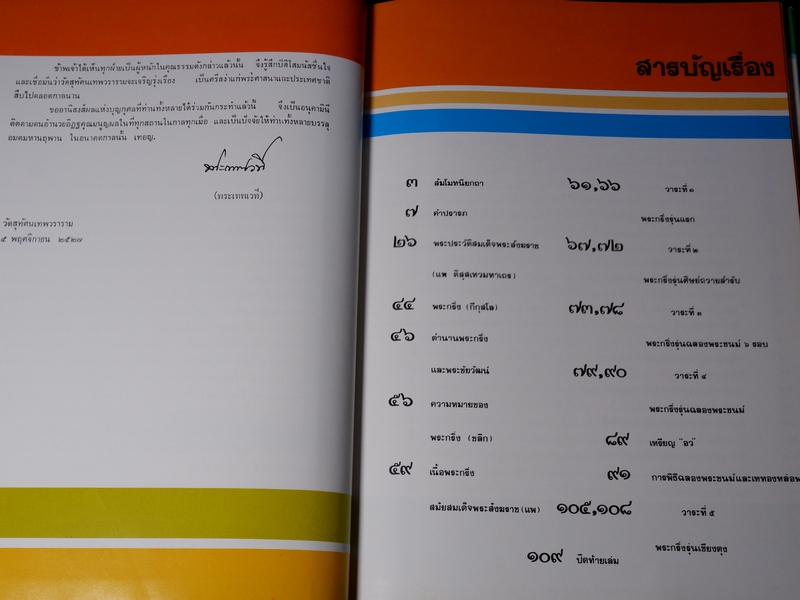 ข้าพเจ้าได้เห็นทุกฝ่ายเป็นผู้หนักในคุณธรรมดังกล่าวแล้วนั้น จึงรู้สึกปีติโสมนัสชื่นใจ
และเชื่อมั่นว่าวัดสุทัศนเทพวรารามจะเจริญรุ่งเรือง เป็นศรีสง่าแก่พระศาสนาและประเทศชาติ
สืบไปตลอดกาลนาน
ขออานิสงส์ผลแห่งบุญกุศลที่ท่านทั้งหลายได้ร่วมกันกระทำแล้วนี้ จึงเป็นอนุคามินี
ติดตามตนอำนวยอิฏฐคุณมนุญผลในที่ทุกสถานในกาลทุกเมื่อ และเป็นปัจจัยให้ท่านทั้งหลายบรรลุ
อมตมหานฤพาน ในอนาคตกาลนั้น เทอญ.
(พระเทพเวที)
วัดสุทัศนเทพวราราม
๕ พฤศจิกายน ๒๕๒๗
สารบัญเรื่อง
๓ สัมโมทนียกถา
๗ คำปรารภ
๒๖ พระประวัติสมเด็จพระสังฆราช
(แพ ติสฺสเทวมหาเถร)
๔๔ พระกริ่ง (กึกุสโล)
๔๖ ตำนานพระกริ่ง
และพระชัยวัฒน์
๕๖ ความหมายของ
พระกริ่ง (ชลิก)
๕๙ เนื้อพระกริ่ง
สมัยสมเด็จพระสังฆราช(แพ)
๖๑,๖๖ วาระที่ ๑
พระกริ่งรุ่นแรก
๖๗,๗๒ วาระที่ ๒
พระกริ่งรุ่นศิษย์ถวายสำรับ
๗๓,๗๘ วาระที่ ๓
พระกริ่งรุ่นฉลองพระชนม์ ๖ รอบ
๗๙,๙๐ วาระที่ ๔
พระกริ่งรุ่นฉลองพระชนม์
๘๙ เหรียญ "อว"
๙๑ การพิธีฉลองพระชนม์และเททองหล่อพ
๑๐๕,๑๐๘ วาระที่ ๕
พระกริ่งรุ่นเชียงตุง
๑๐๙ ปิดท้ายเล่ม